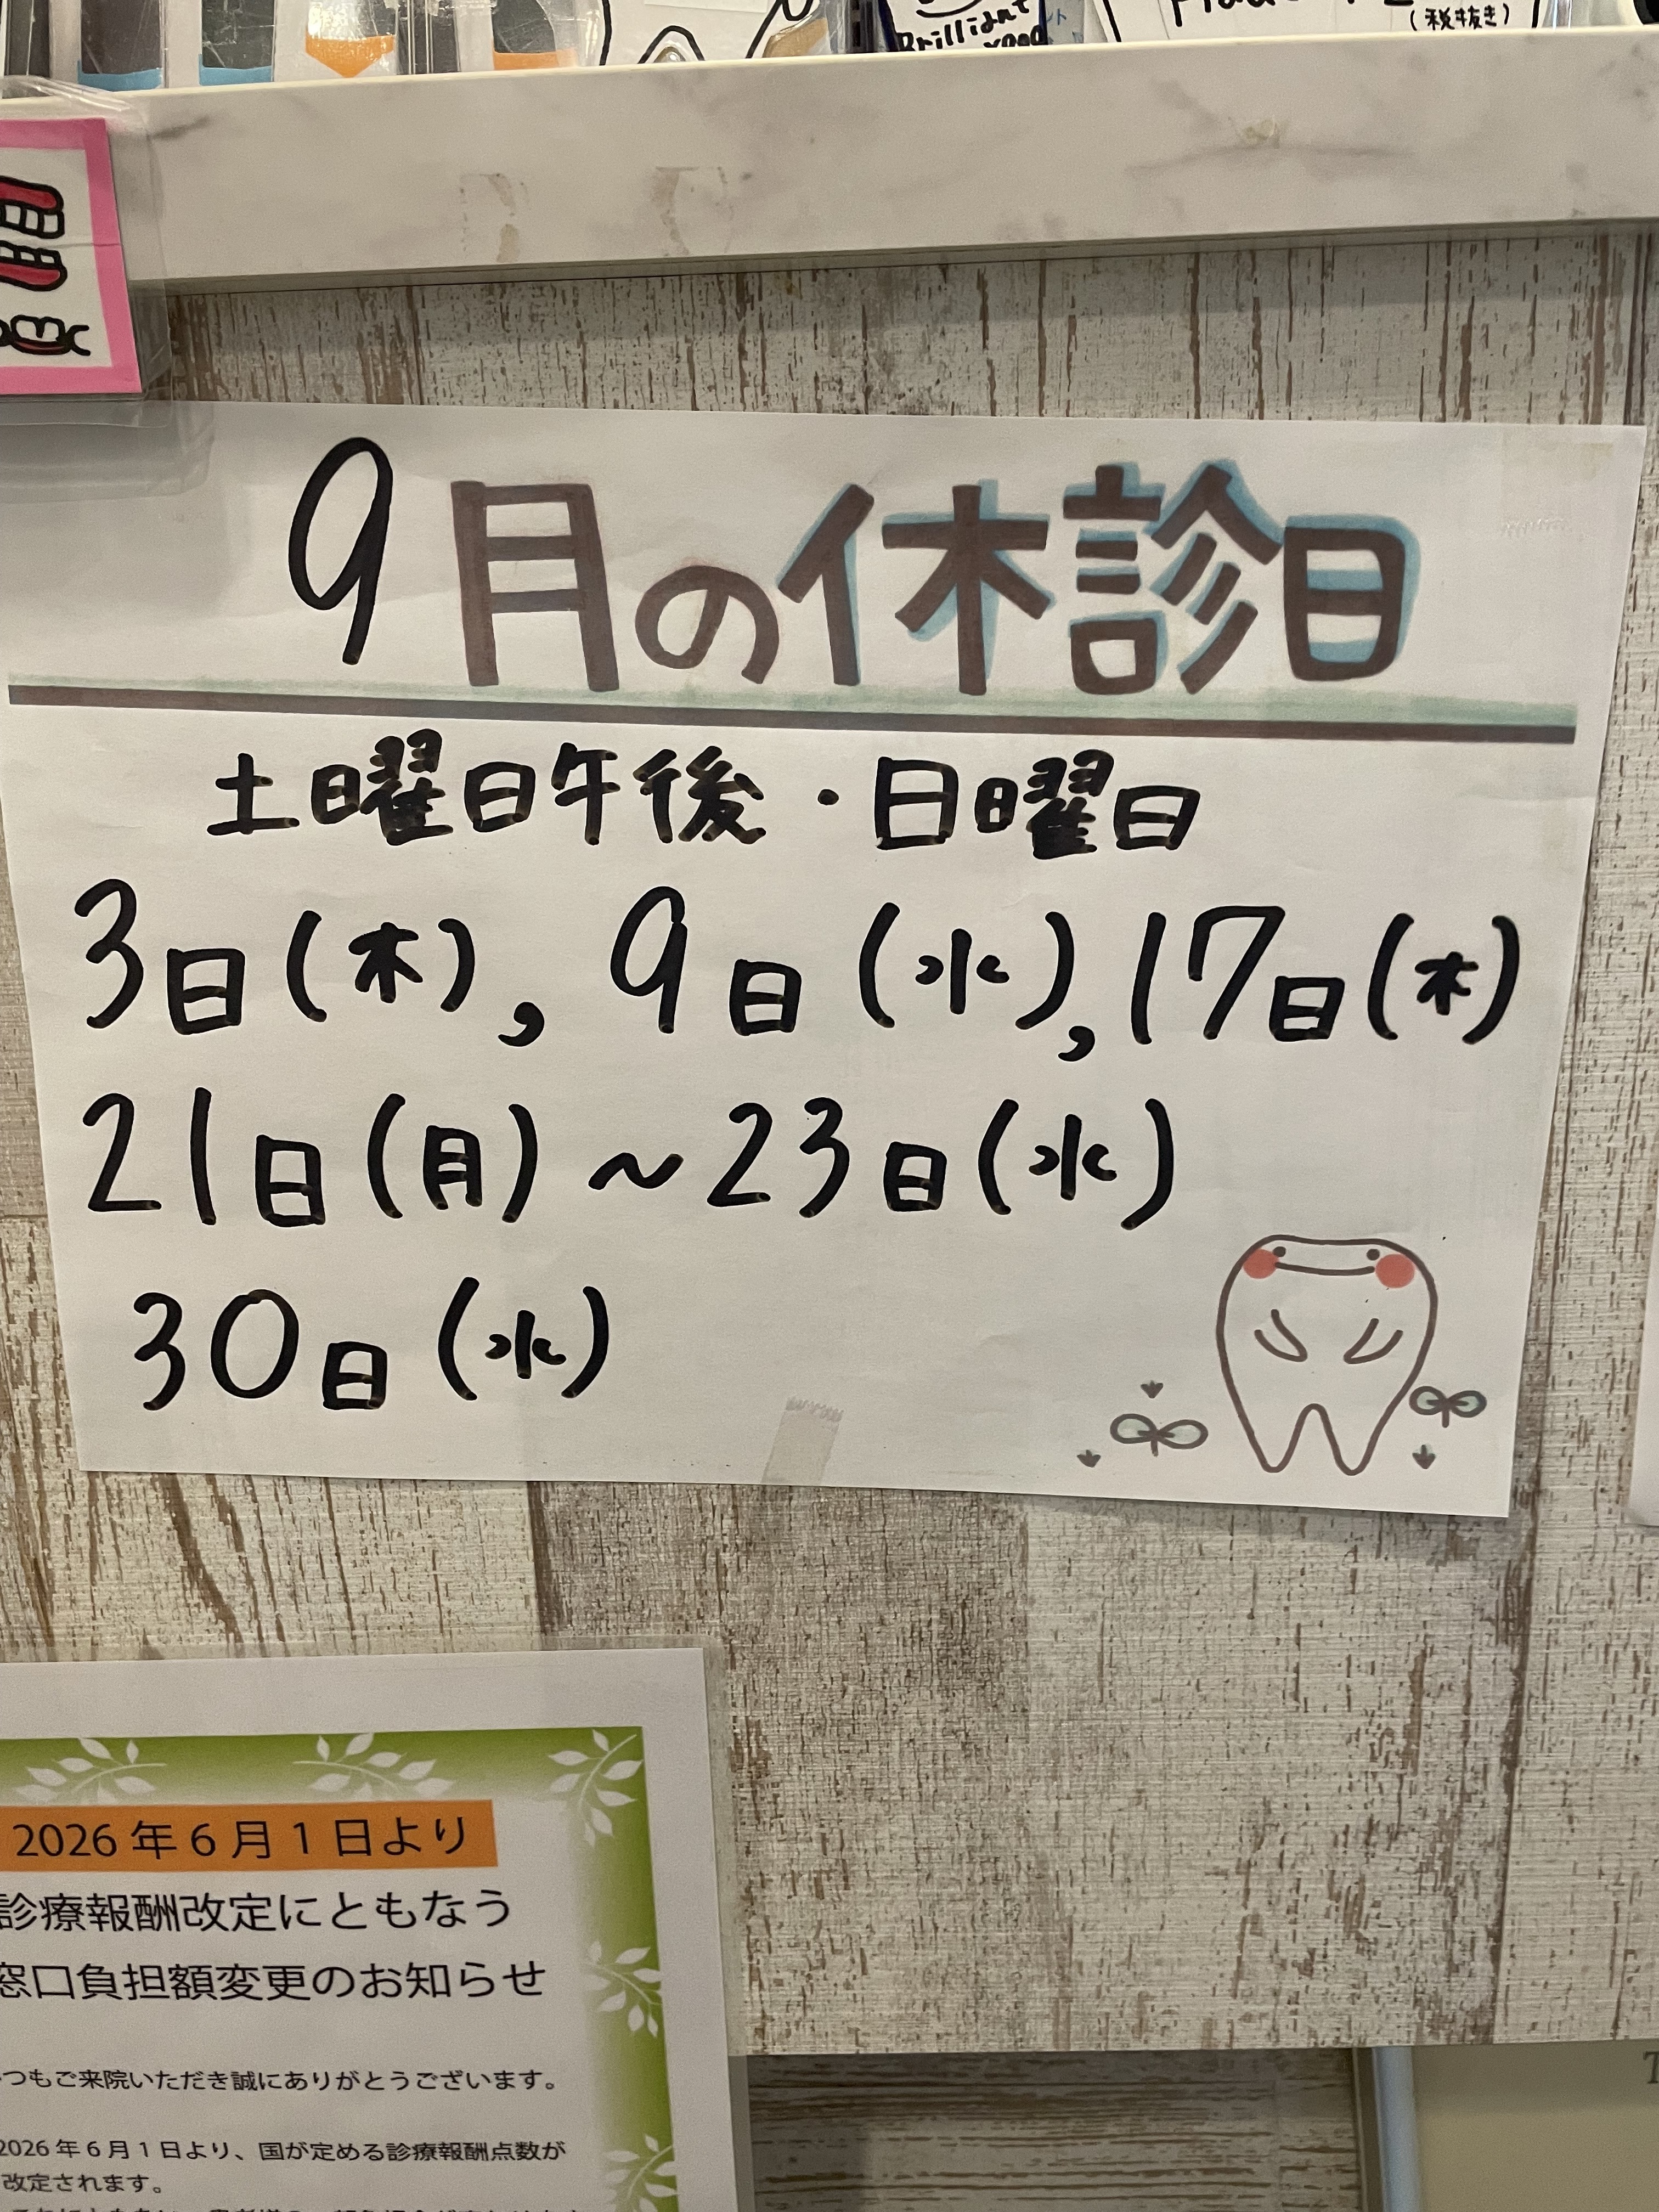 Brilliant
(税抜き)
9月の休診日
土曜日午後・日曜日
3日(木), 9日(水), 17日(木)
21日(月)~23日(水)
30日(水)
2026年6月1日より
診療報酬改定にともなう
窓口負担額変更のお知らせ
つもご来院いただき誠にありがとうございます。
2026年6月1日より、国が定める診療報酬点数が
改定されます。